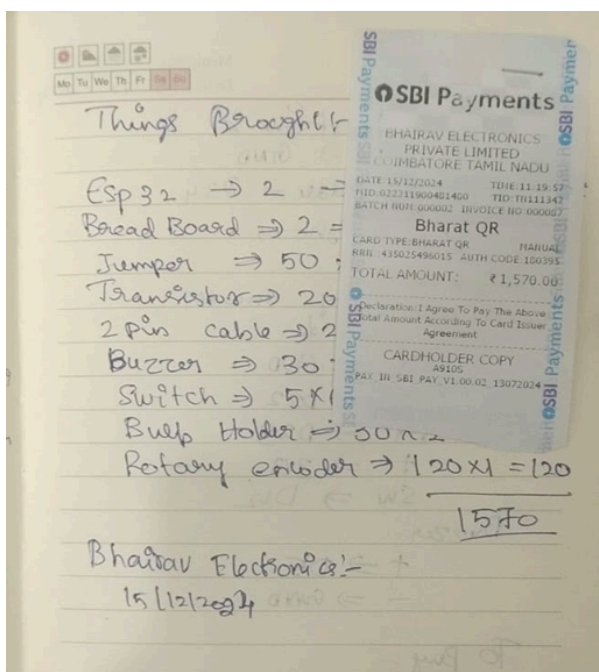 Mo Tu We Th Fr Sa Su
Things Broaght:-
Esp 32 ⇒ 2
Bread Board ⇒ 2 =
Jumper ⇒ 50
Transistor ⇒ 20
2 pin cable ⇒ 2
Buzzer ⇒ 30
Switch ⇒ 5×1
Bulb Holder ⇒
Rotary encoder ⇒ 120×1 = 120
1570
Bhairav Electronics:-
15/12/2024
SBI Payments
BHAIRAV ELECTRONICS
PRIVATE LIMITED
COIMBATORE TAMIL NADU
DATE:15/12/2024 TIME:11:19:57
MID:022211900481480 TID:TH111342
BATCH NUM:000002 INVOICE NO:000087
Bharat QR
CARD TYPE:BHARAT QR MANUAL
RRN :435025496015 AUTH CODE:100395
TOTAL AMOUNT: ₹1,570.00
Declaration:I Agree To Pay The Above
Total Amount According To Card Issuer
Agreement
CARDHOLDER COPY
A910S
PAX_IN_SBI_PAY_V1.00.02_13072024
SBI Payments
SBI Payments
SBI Payments
SBI Payments